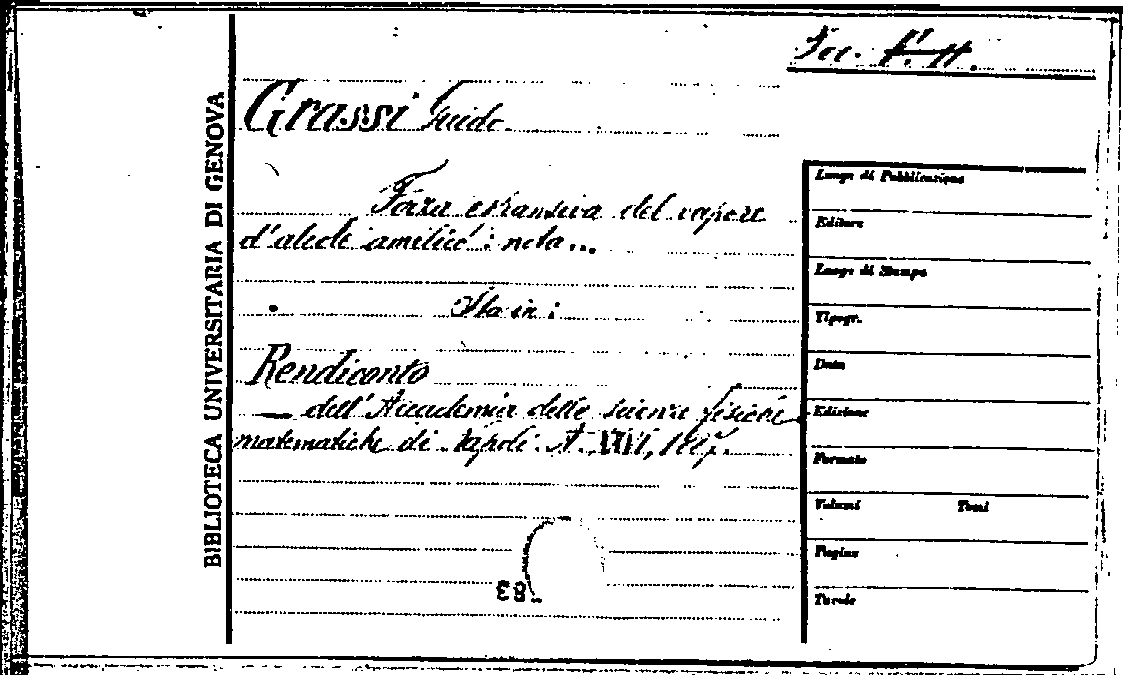 BIBLIOTECA UNIVERSITARIA DI GENOVA
Grassi Guido
Forza espansiva del vapore
d'alcole amilico: nota...
Sta in:
Rendiconto
— dell'Accademia delle scienze fisiche
matematiche di Napoli. A. XXVI, 1887.
Luogo di Pubblicazione
Editore
Luogo di Stampa
Tipogr.
Data
Edizione
Formato
Volumi Tomi
Pagine
Tavole